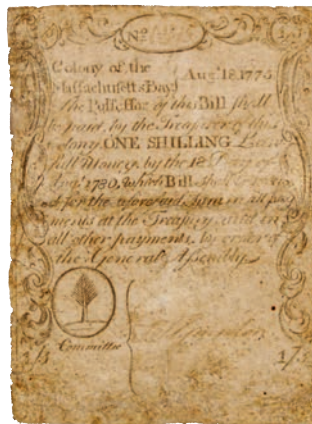 No
Colony of the Augt. 18. 1775
Massachusetts Bay
the Possessor of this Bill shall
be paid, by the Treasurer of this
Colony, ONE SHILLING Law-
full Money, by the 18 Day of
Augt. 1780, which Bill shall be
for the aforesaid Sum in all pay-
ments at the Treasury, and in
all other payments by order of
the General Assembly.
Committee
1/s 1/s